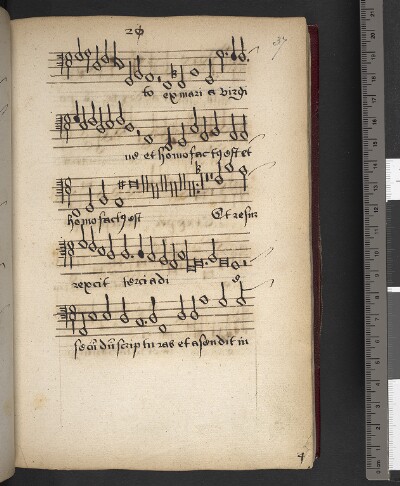 to ex mari a virgi
ne et homo factꝰ est et
homo factꝰ est Et resur
rexcit terci a di
secũ dũ scripturas et asendit in